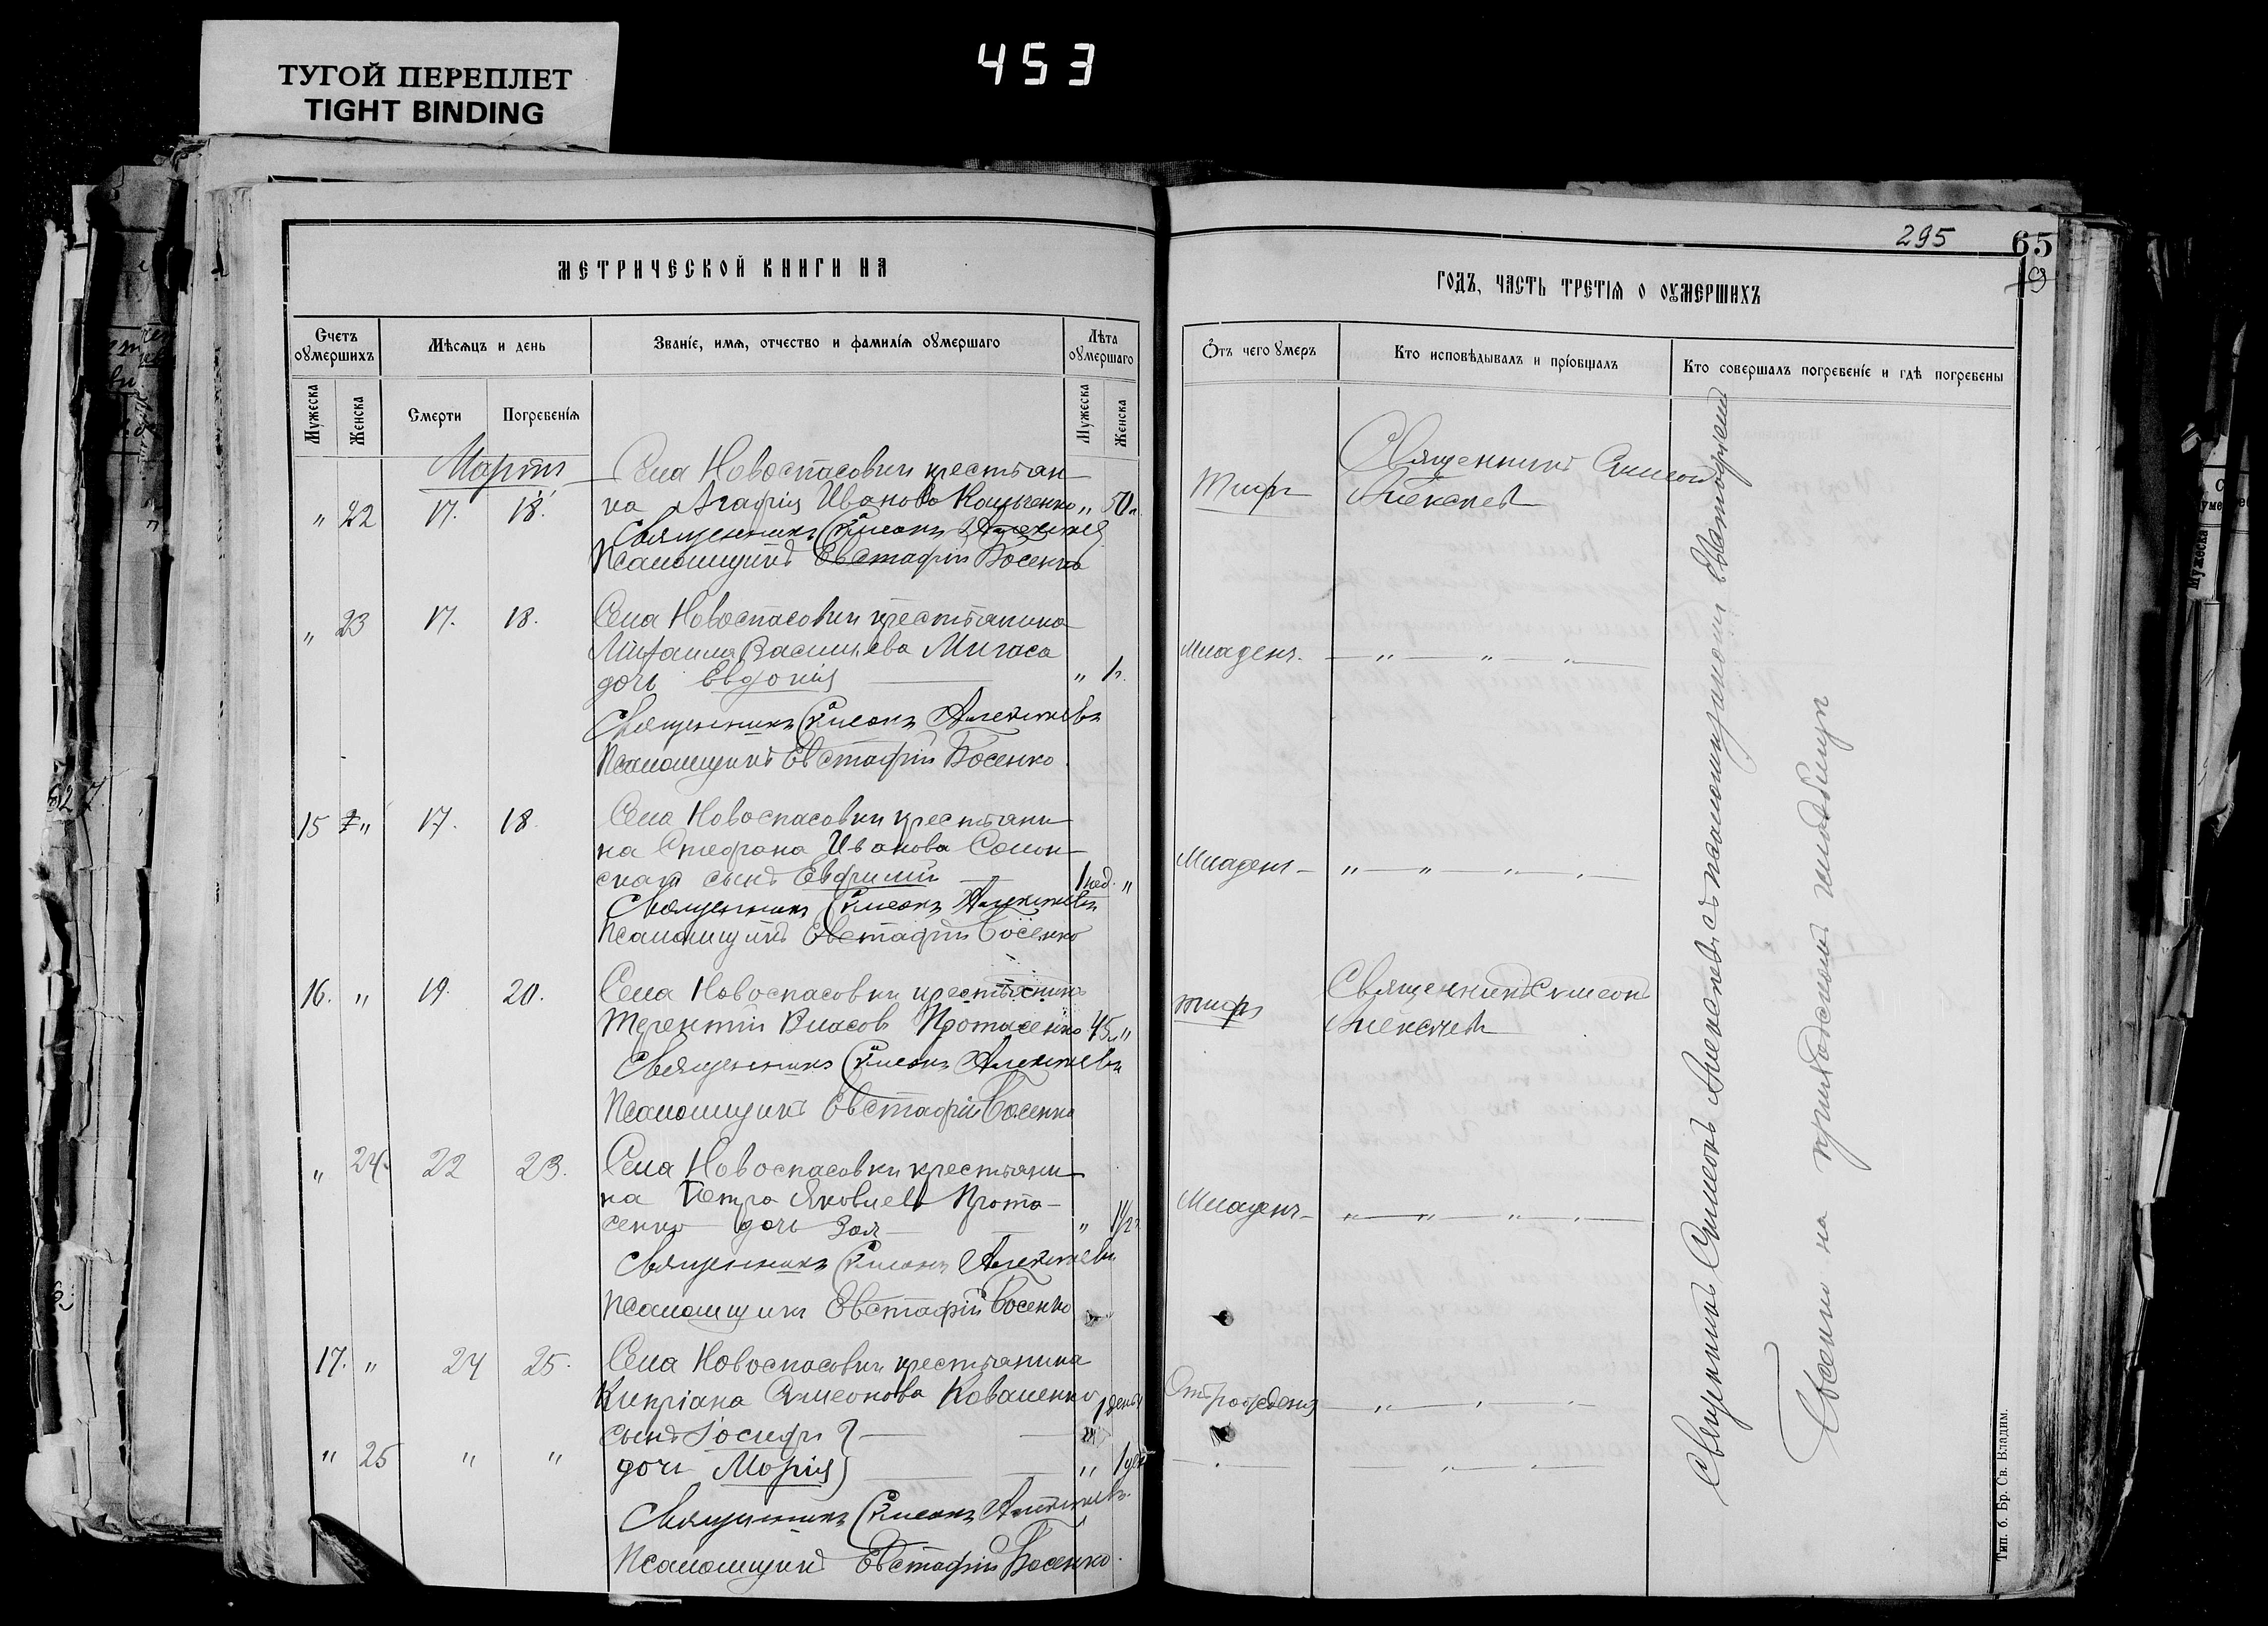 453
ТУГОЙ ПЕРЕПЛЕТ
TIGHT BINDING
МЕТРИЧЕСКОЙ КНИГИ НА
Счетъ оумершихъ
Мѣсяцъ и день
Званіе, имя, отчество и фамилія оумершаго
Лѣта оумершаго
Мужеска
Женска
Смерти
Погребенія
Мужеска
Женска
Мартъ
Села Новоспасовки крестьян
" 22 17. 18. ка Агафія Иванова " 50л.
Священникъ Симеонъ Алексѣев
Псаломщикъ Евстафій Босенко
" 23 17. 18. Села Новоспасовки крестьянина
Михаила Васильева Мигаса
дочь Евдокія " 1г.
Священникъ Симеонъ Алексѣевъ
Псаломщикъ Евстафій Босенко
15 " 17. 18. Села Новоспасовки крестьяни
на Стефана Иванова Солон
скаго сынъ Евфимій 1 нед. "
Священникъ Симеонъ Алексѣевъ
Псаломщикъ Евстафій Босенко
16. " 19. 20. Села Новоспасовки крестьянинъ
Терентій Власовъ Протасенко 45л "
Священникъ Симеонъ Алексѣевъ
Псаломщикъ Евстафій Босенко
" 24. 22 23. Села Новоспасовки крестьяни
на Петра Яковлева Прота-
сенко дочь Зоя " 1/2г.
Священникъ Симеонъ Алексѣевъ
Псаломщикъ Евстафій Босенко
17. " 24 25. Села Новоспасовки крестьянина
Кипріана Симеонова Коваленко 1 день
сынъ Іосифъ
" 25 " " дочь Марія " 1 де
Священникъ Симеонъ Алексѣевъ.
Псаломщикъ Евстафій Босенко.
295
65
ГОДЪ, ЧАСТЬ ТРЕТІЯ О ОУМЕРШИХЪ
Отъ чего умеръ
Кто исповѣдывалъ и пріобщалъ
Кто совершалъ погребеніе и гдѣ погребены
Священникъ Симеон
Тифъ Алексѣев
Младенч. " " "
Младенч. " " " "
Священникъ Симеонъ
тифъ Алексѣевъ
Младенч. " " " "
Отъ рожденія " " "
" " "
Священникъ Симеонъ Алексѣевъ съ псаломщикомъ Евстафіемъ
Босенко на приходскомъ кладбищѣ
Тип. б. Бр. Св. Владим.